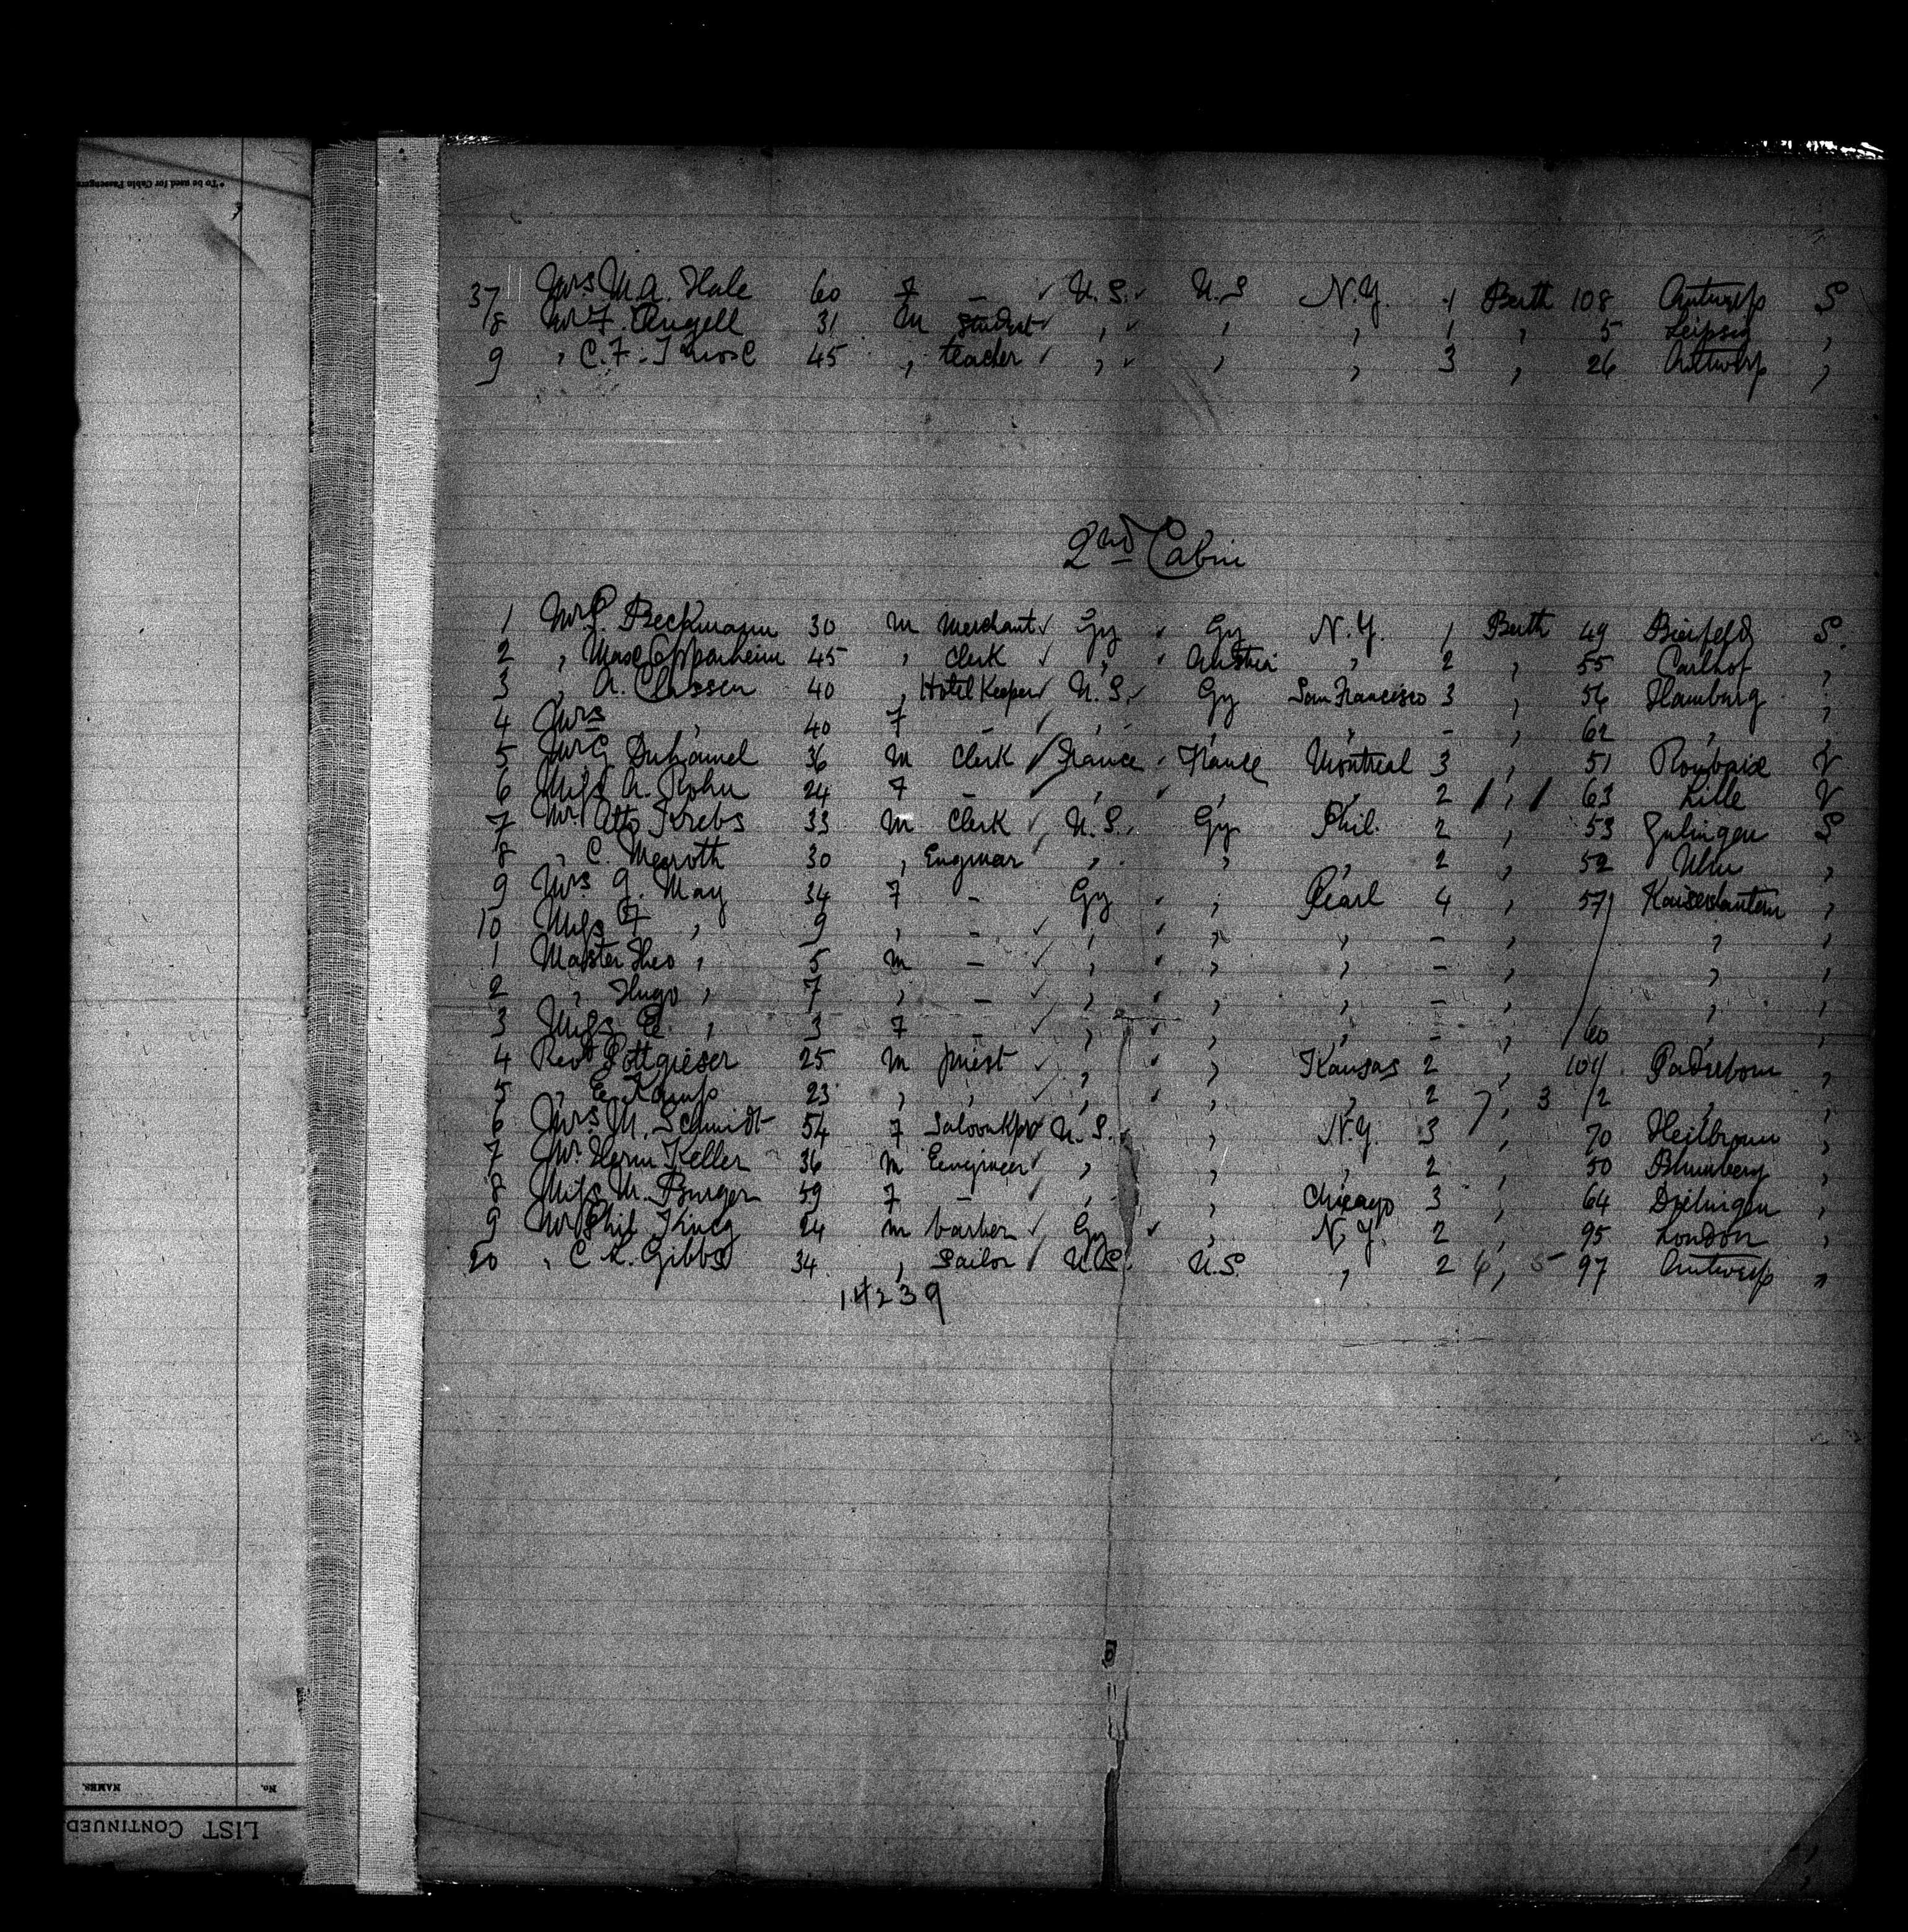 *To be used for Cabin Passengers
37 Mrs M. A. Hale 60 F - ✓ U. S. ✓ U. S N.Y. 1 Berth 108 Antwerp S
8 Mr F. Angell 31 M Student ✓ , ✓ , , 1 , 5 Leipsig ,
9 , C. F. 45 , teacher ✓ , ✓ , , 3 , 26 Antwerp ,
2nd Cabin
1 Mr P. Beckmann 30 M Merchant ✓ Gy ✓ Gy N.Y. 1 Berth 49 Bielfeld S.
2 , Max Oppenheim 45 , Clerk ✓ , ✓ Austria , 2 , 55 Carlhof ,
3 , A. Classen 40 , Hotel Keeper ✓ U. S. ✓ Gy San Francisco 3 , 56 Hamburg ,
4 Mrs , 40 F - ✓ , , , - , 62 , ,
5 Mr G. Duhamel 36 M Clerk ✓ France ✓ France Montreal 3 , 51 Roubaix V
6 Miss A. Rohn 24 F - ✓ , ✓ , , 2 / , / 63 Lille V
7 Mr Otto Krebs 33 M Clerk ✓ U. S. Gy Phil. 2 , 53 S
8 , C. Megroth 30 , Enginear , , , 2 , 52 Ulm ,
9 Mrs G. May 34 F - Gy ✓ , Pearl 4 , 57 Kaiserslautern ,
10 Miss F , 9 , - ✓ , ✓ , , - , , ,
1 Master Theo , 5 M - ✓ , ✓ , , - , , ,
2 , Hugo , 7 , - ✓ , ✓ , , - , , ,
3 Miss E. , 3 F - ✓ , ✓ , , - , 60 , ,
4 Revd Pottgieser 25 M priest ✓ , , Kansas 2 , 101 Paderborn ,
5 , E. Kamp 23 , , ✓ , ✓ , , 2 7, 3 /2 , ,
6 Mrs M. Schmidt 54 F Saloonkpr ✓ U. S. ✓ , N.Y. 3 , 70 Heilbronn ,
7 Mr Herm Keller 36 M Eengineer ✓ , , , 2 , 50 Blumberg ,
8 Miss M. Burger 59 F - ✓ , , Chicago 3 , 64 ,
9 Mr Phil. 24 M barber ✓ Gy ✓ , N.Y. 2 , 95 London ,
20 , C. L. Gibbs 34 , Sailor ✓ U.S. U.S. , 2 6, 5 97 Antwerp "
14239
No. NAMES.
LIST CONTINUED